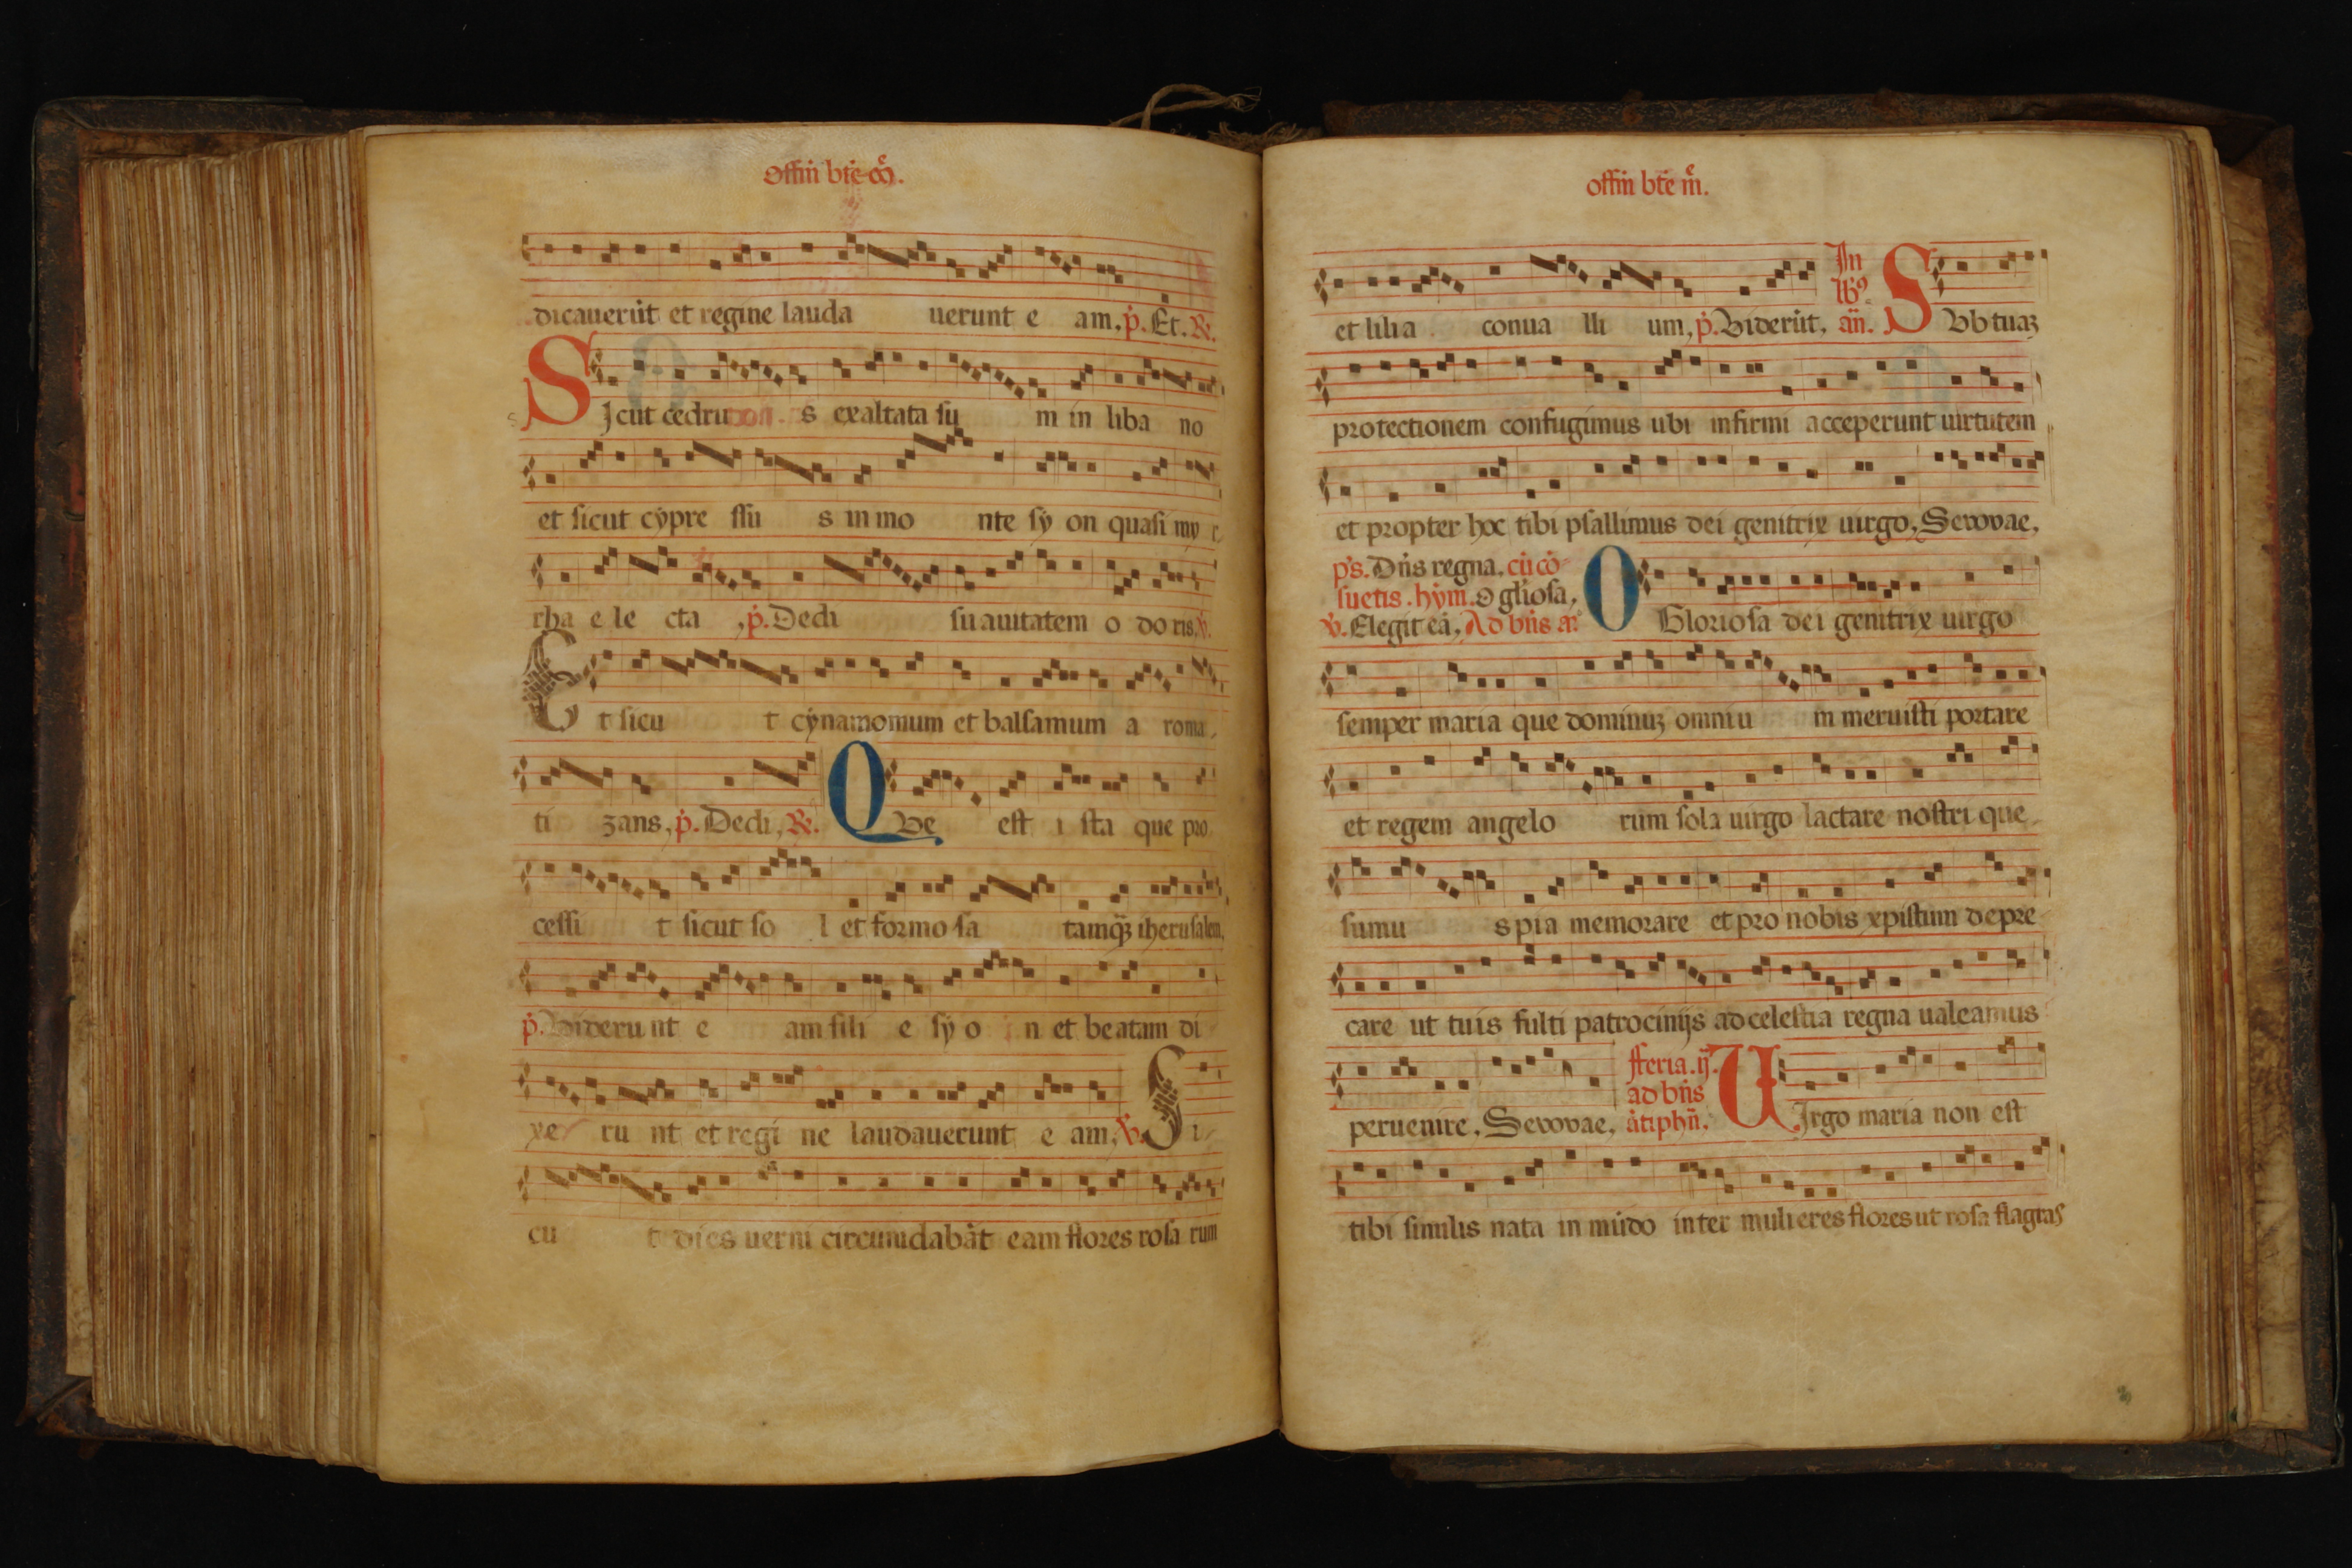 Offiñ bte
dicauerūt et regine lauda uerunt e am. p̄. Et. ℟.
SIcut cedru s exaltata su m in liba no
et sicut cypre ssu s in mo nte sy on quasi my r
rha e le cta, p̄. Dedi suauitatem o do ris. ℣.
Et sicu t cynamomum et balsamum a roma
ti zans, p̄. Dedi, ℟. QVe est i sta que pro
cessi t sicut so l et formo sa tamqȝ iherusalem,
p̄. Viderunt e am fili e sy o n et beatam di
xe ru nt et regi ne laudauerunt e am, ℣. Si
cu t dies uerni circumdabāt eam flores rosa rum
offiñ bte m̄.
et lilia conua lli um, p̄. Viderūt, In lb⁹ añ. SVb tuaȝ
protectionem confugimus ubi infirmi acceperunt uirtutem
et propter hoc tibi psallimus dei genitrix uirgo, Seuouae,
ps. Dñs regna. cū cō
suetis. hym. O gliosa,
℣. Elegit eā, Ad bñs a. O Gloriosa dei genitrix uirgo
semper maria que dominuȝ omniu m meruisti portare
et regem angelo rum sola uirgo lactare nostri que
sumu s pia memorare et pro nobis xpistum depre
care ut tuis fulti patrocinijs ad celestia regna ualeamus
peruenire, Seuouae, fferia. ij. ad bñs ātiphñ. VIrgo maria non est
tibi similis nata in mūdo inter mulieres flores ut rosa flagras